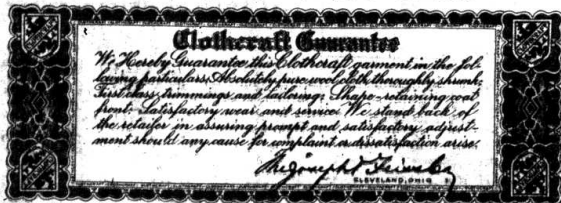 Clothcraft Guarantee
We Hereby Guarantee this Clothcraft garment in the fol-
lowing particulars: Absolutely pure wool cloth, thoroughly shrunk.
First class trimmings and tailoring. Shape-retaining coat
front. Satisfactory wear and service. We stand back of
the retailer in assuring prompt and satisfactory adjust-
ment should any cause for complaint or dissatisfaction arise.
The Joseph & Feiss Co
CLEVELAND, OHIO